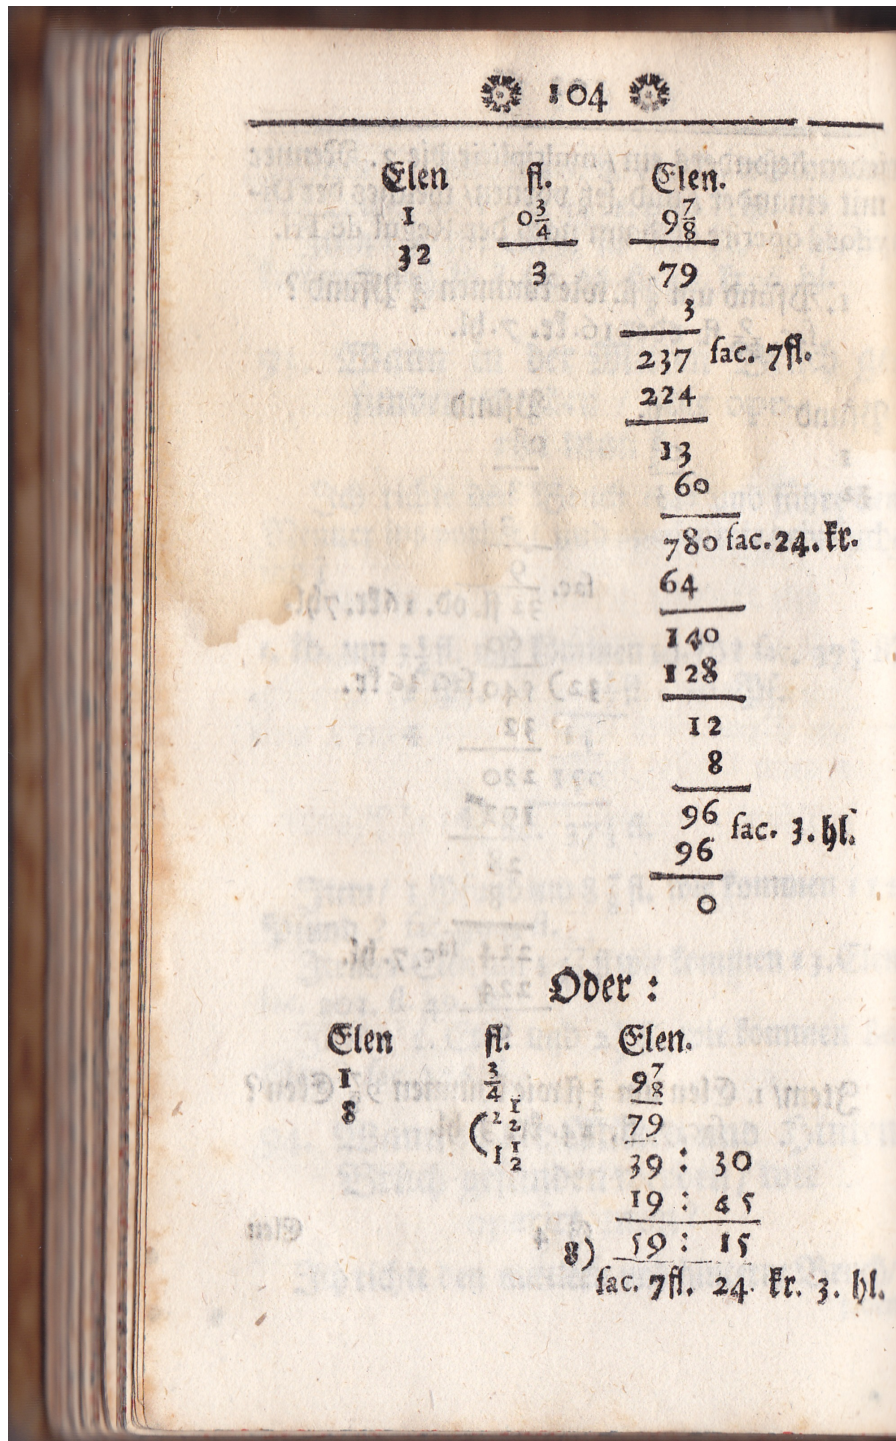 104
Elen fl. Elen.
1 0 3/4 9 7/8
32 3 79
3
237 fac. 7fl.
224
13
60
780 fac. 24. kr.
64
140
128
12
8
96 fac. 3. hl.
96
0
Oder :
Elen fl. Elen.
1 3/4 9 7/8
8 ( 2 1/2 79
1 1/2 39 : 30
19 : 45
8) 59 : 15
fac. 7fl. 24. kr. 3. hl.